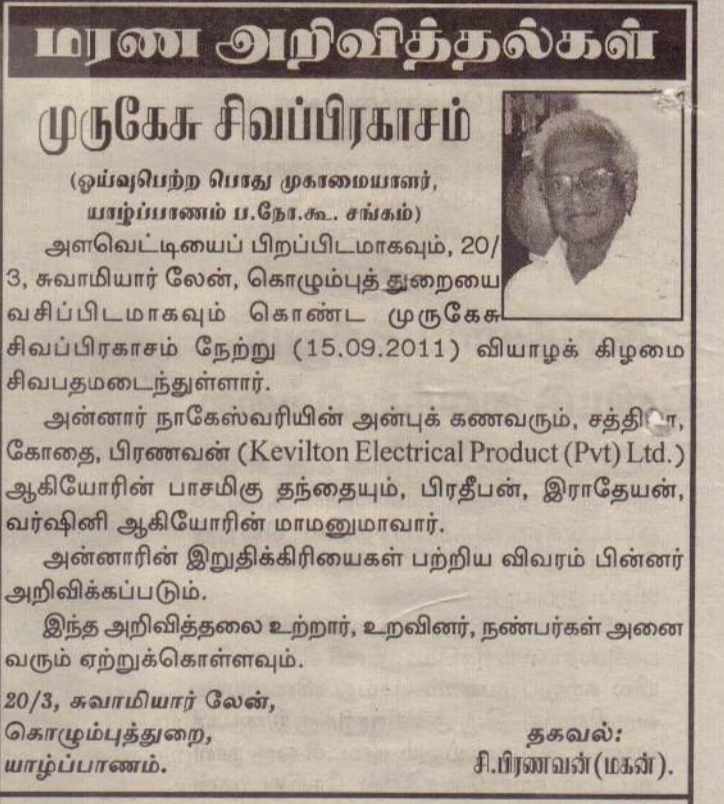 மரண அறிவித்தல்கள்
முருகேசு சிவப்பிரகாசம்
(ஓய்வுபெற்ற பொது முகாமையாளர்,
யாழ்ப்பாணம் ப.நோ.கூ. சங்கம்)
அளவெட்டியைப் பிறப்பிடமாகவும், 20/
3, சுவாமியார் லேன், கொழும்புத் துறையை
வசிப்பிடமாகவும் கொண்ட முருகேசு
சிவப்பிரகாசம் நேற்று (15.09.2011) வியாழக் கிழமை
சிவபதமடைந்துள்ளார்.
அன்னார் நாகேஸ்வரியின் அன்புக் கணவரும்,
கோதை, பிரணவன் (Kevilton Electrical Product (Pvt) Ltd.)
ஆகியோரின் பாசமிகு தந்தையும், பிரதீபன், இராதேயன்,
வர்ஷினி ஆகியோரின் மாமனுமாவார்.
அன்னாரின் இறுதிக்கிரியைகள் பற்றிய விவரம் பின்னர்
அறிவிக்கப்படும்.
இந்த அறிவித்தலை உற்றார், உறவினர், நண்பர்கள் அனை
வரும் ஏற்றுக்கொள்ளவும்.
20/3, சுவாமியார் லேன்,
கொழும்புத்துறை,
யாழ்ப்பாணம்.
தகவல்:
சி.பிரணவன்(மகன்).